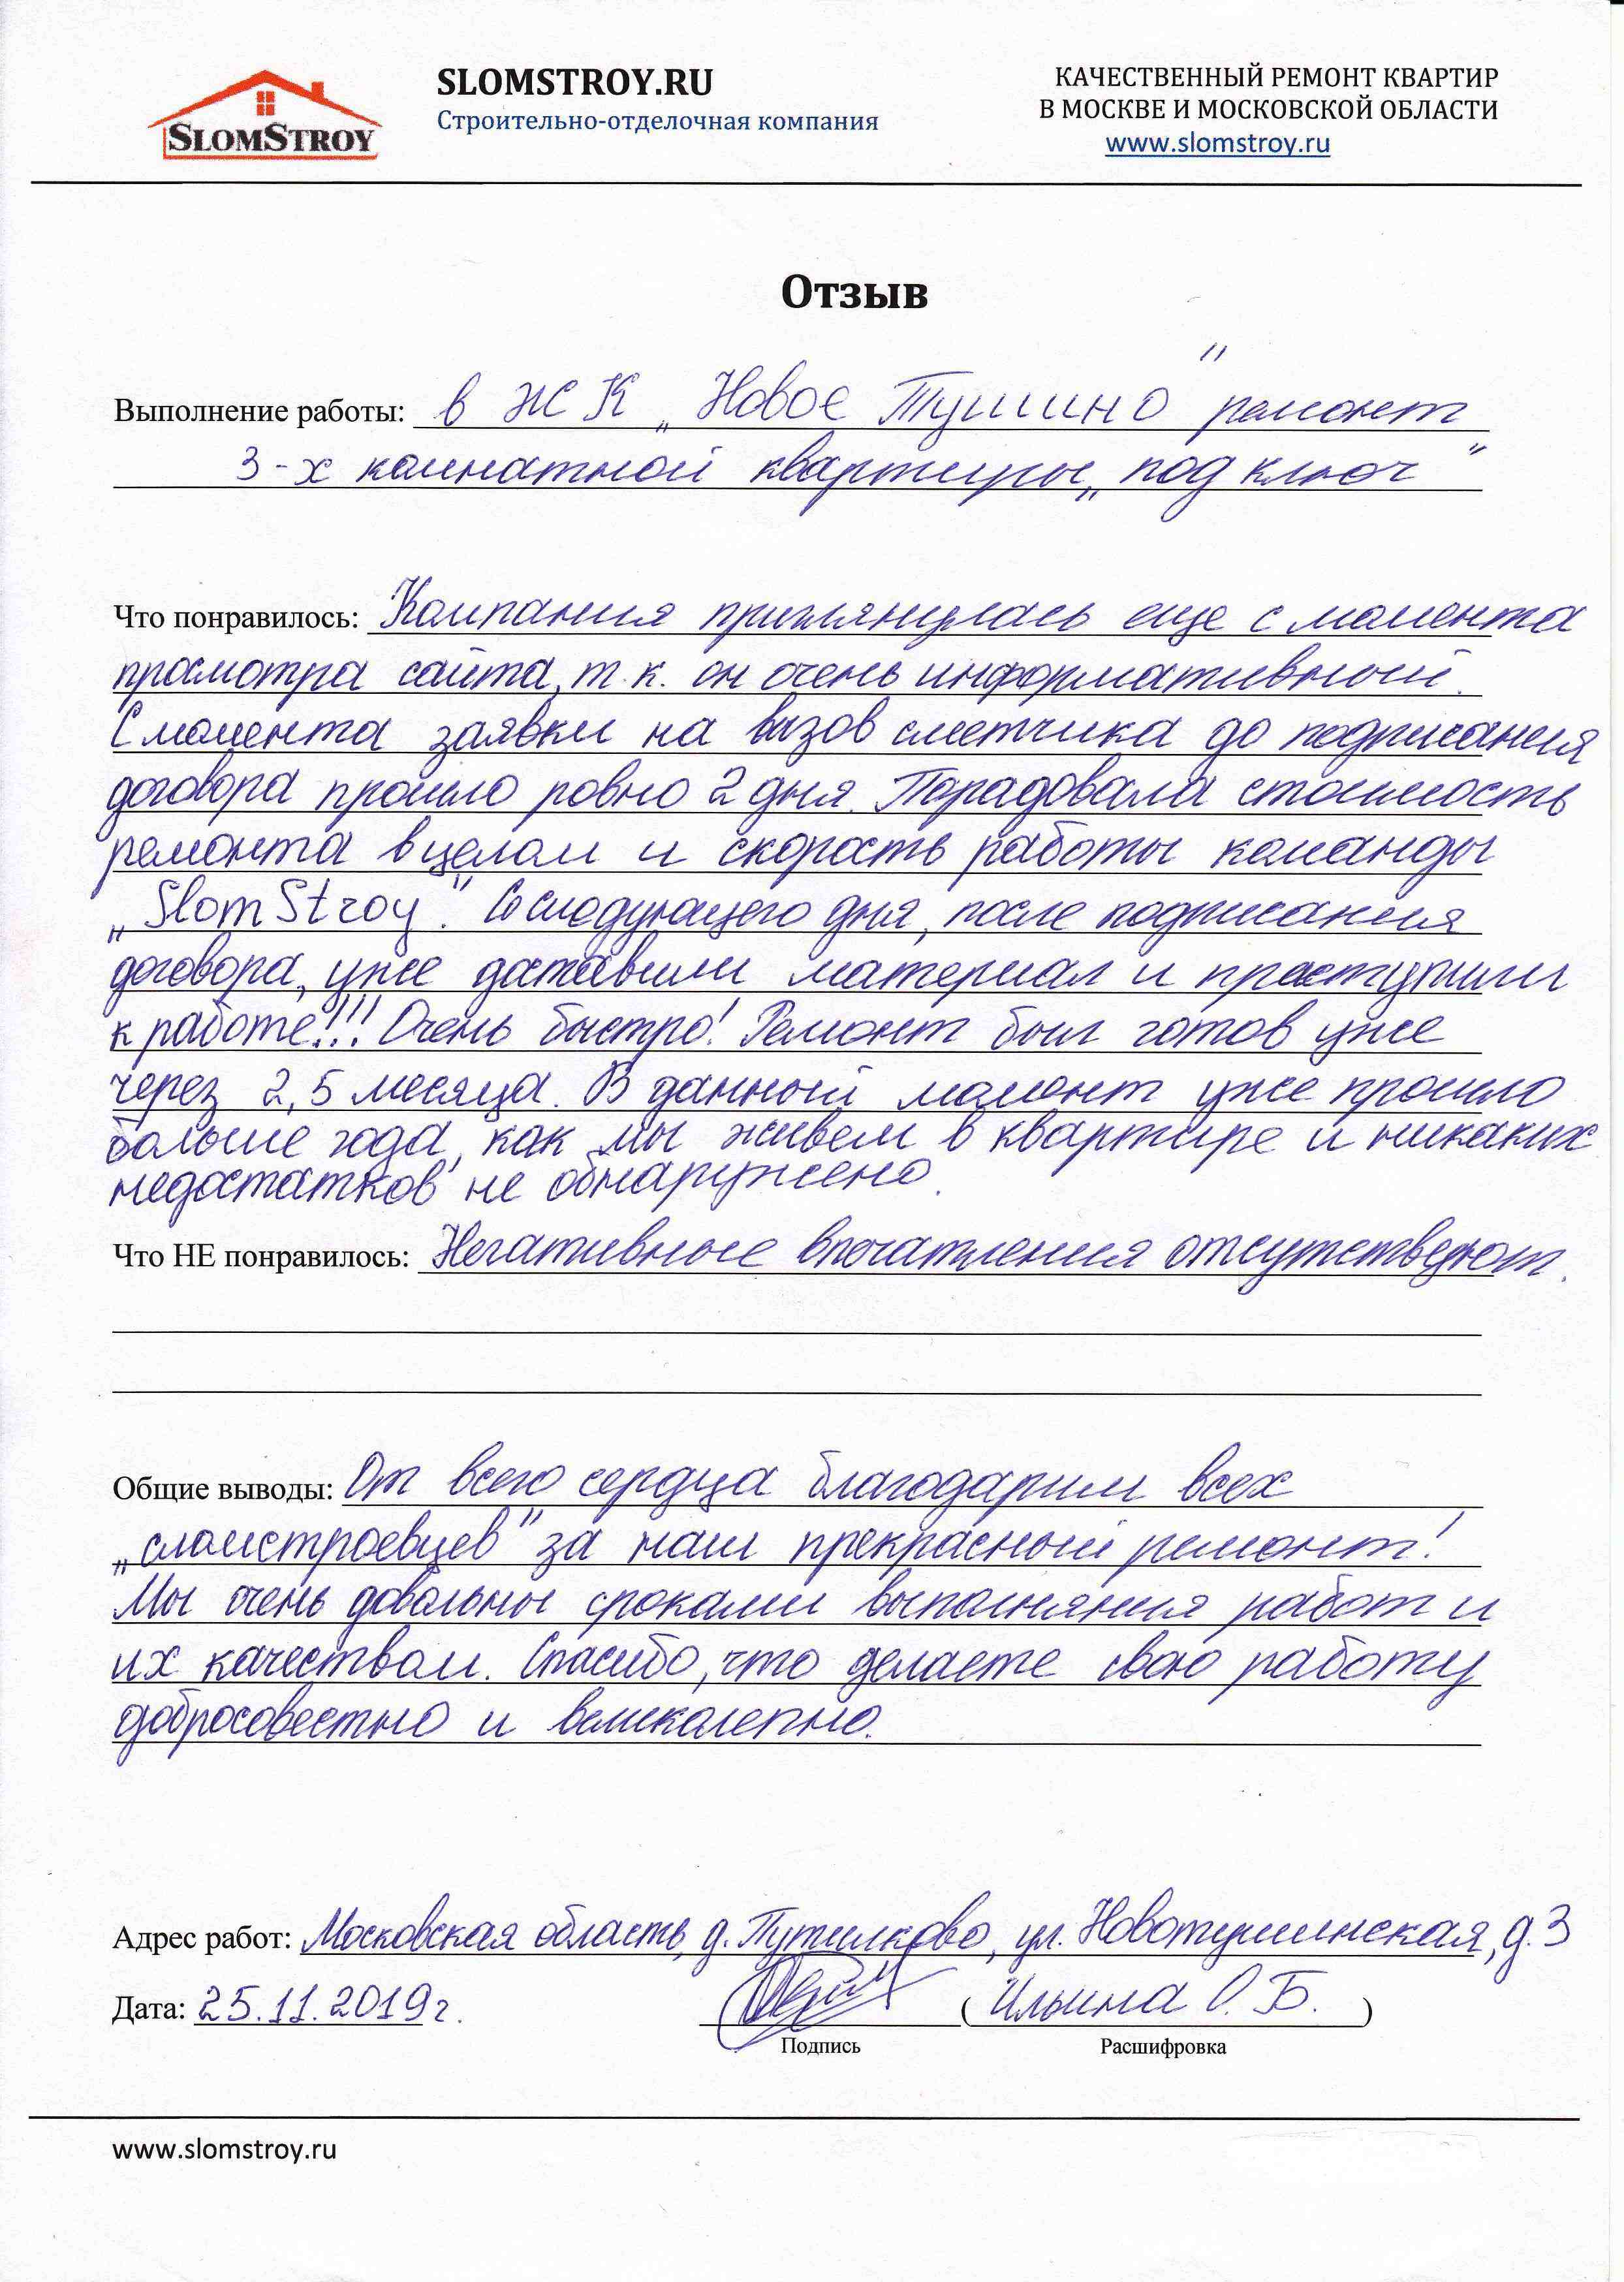 SLOMSTROY
SLOMSTROY.RU
Строительно-отделочная компания
КАЧЕСТВЕННЫЙ РЕМОНТ КВАРТИР
В МОСКВЕ И МОСКОВСКОЙ ОБЛАСТИ
www.slomstroy.ru
Отзыв
Выполнение работы: в ЖК „Новое Тушино" ремонт
3-х комнатной квартиры „под ключ"
Что понравилось: Компания приглянулась еще с момента
просмотра сайта, т.к. он очень информативный.
С момента заявки на вызов сметчика до подписания
договора прошло ровно 2 дня. Порадовала стоимость
ремонта в целом и скорость работы команды
„SlomStroy". Со следующего дня, после подписания
договора, уже доставили материал и преступили
к работе!!! Очень быстро! Ремонт был готов уже
через 2,5 месяца. В данный момент уже прошло
больше года, как мы живем в квартире и никаких
недостатков не обнаружено.
Что НЕ понравилось: Негативные впечатления отсутствуют.
Общие выводы: От всего сердца благодарим всех
„сломстроевцев" за наш прекрасный ремонт!
Мы очень довольны сроками выполняния работ и
их качеством. Спасибо, что делаете свою работу
добросовестно и великолепно.
Адрес работ: Московская область, д. Путилково, ул. Новотушинская, д. 3
Дата: 25.11.2019г. (Ильина О. Б.)
Подпись Расшифровка
www.slomstroy.ru